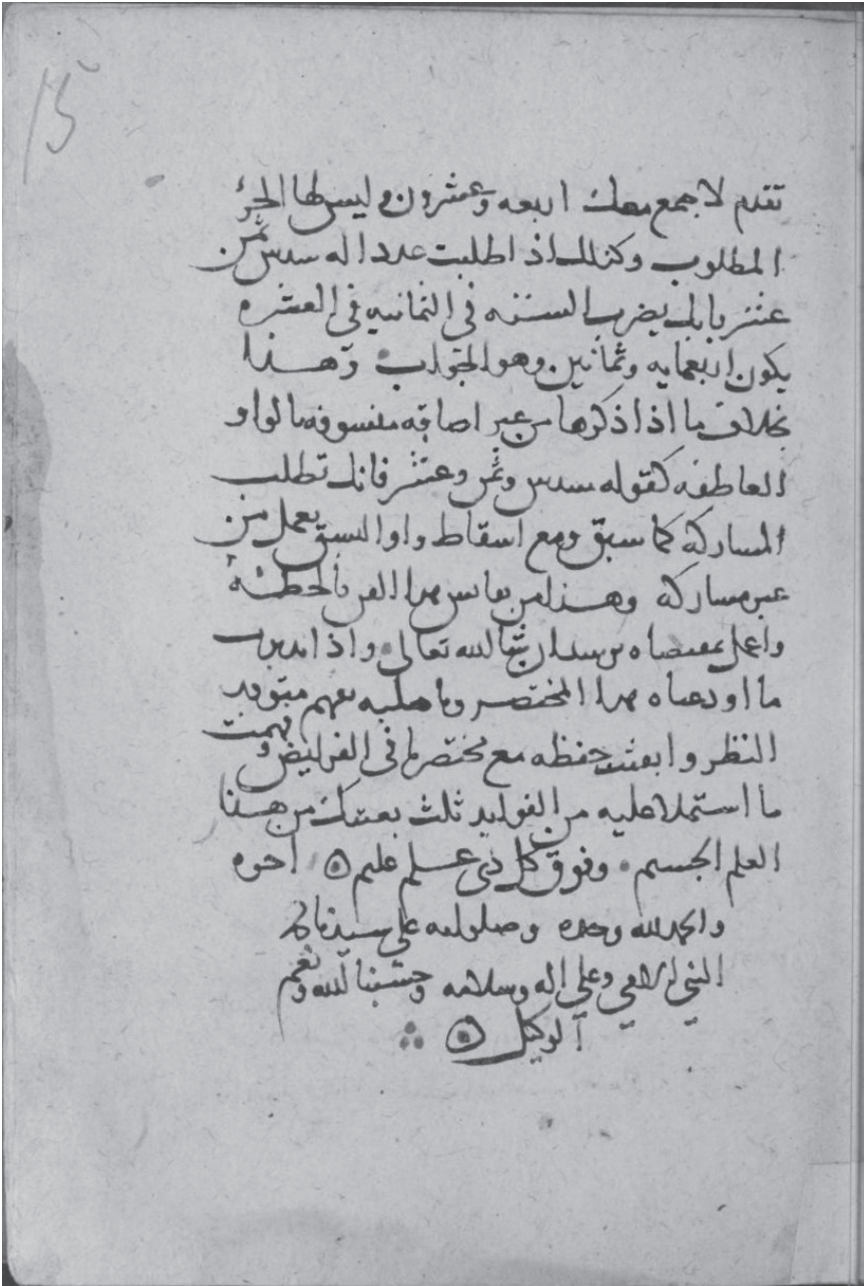 15
تقدم لاجمع معك اربعه وعشرون وليس لها الجزؤ
المطلوب وكذلك اذا طلبت عددا له سدس ثمن
عشر فانك تضرب الستة في الثمانيه في العشره
يكون اربعمايه وثمانين وهو الجواب وهذا
بخلاف ما اذا ذكرها من غير اضافه منسوقه بالواو
العاطفه كقوله سدس وثمن وعشر فانك تطلب
المشاركه كما سبق ومع اسقاط واو النسق يعمل من
غير مشاركه وهذا من نفايس هذا الفن فاحفظه
واعمل بمقتضاه ترشد ان شا الله تعالى واذا تدبرت
ما اودعناه هذا المختصر وتاملته بفهم
النظر حفظه مع مختصرنا في الفرايض وفهمت
ما استملا عليه من الفوايد من هذا
العلم الجسيم وفوق كل ذي علم عليم اخره
والحمد لله وحده وصلواته على سيدنا محمد
النبي الامي وعلى اله وسلامه وحسبنا الله ونعم
الوكيل